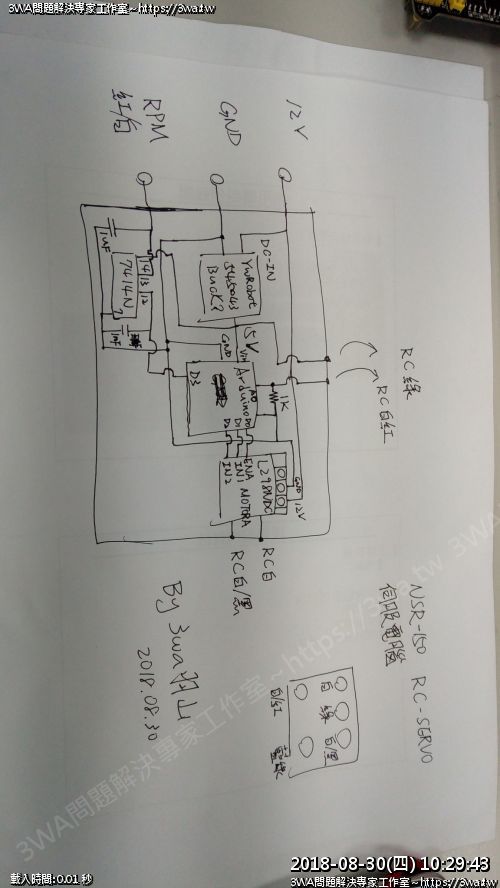 3WA問題解決專家工作室~https://3wa.tw
12V
GND
RPM
紅白
DC-IN
YwRobot
545043
Buck?
5V
GND
VIN
Arduino
A0
D3
D0
D1
D2
1K
L298N DC
MOTORA
ENA
IN1
IN2
GND
12V
1uF
7414N
14
13
12
RC綠
RC白紅
RC白
RC白/黑
NSR-150 RC-SERVO
伺服電腦
白
綠
白/黑
白/紅
藍綠
By 3wa羽山
2018.08.30
3WA問題解決專家工作室~https://3wa.tw 3WA
2018-08-30(四) 10:29:43
載入時間:0.01 秒
3WA問題解決專家工作室~https://3wa.tw